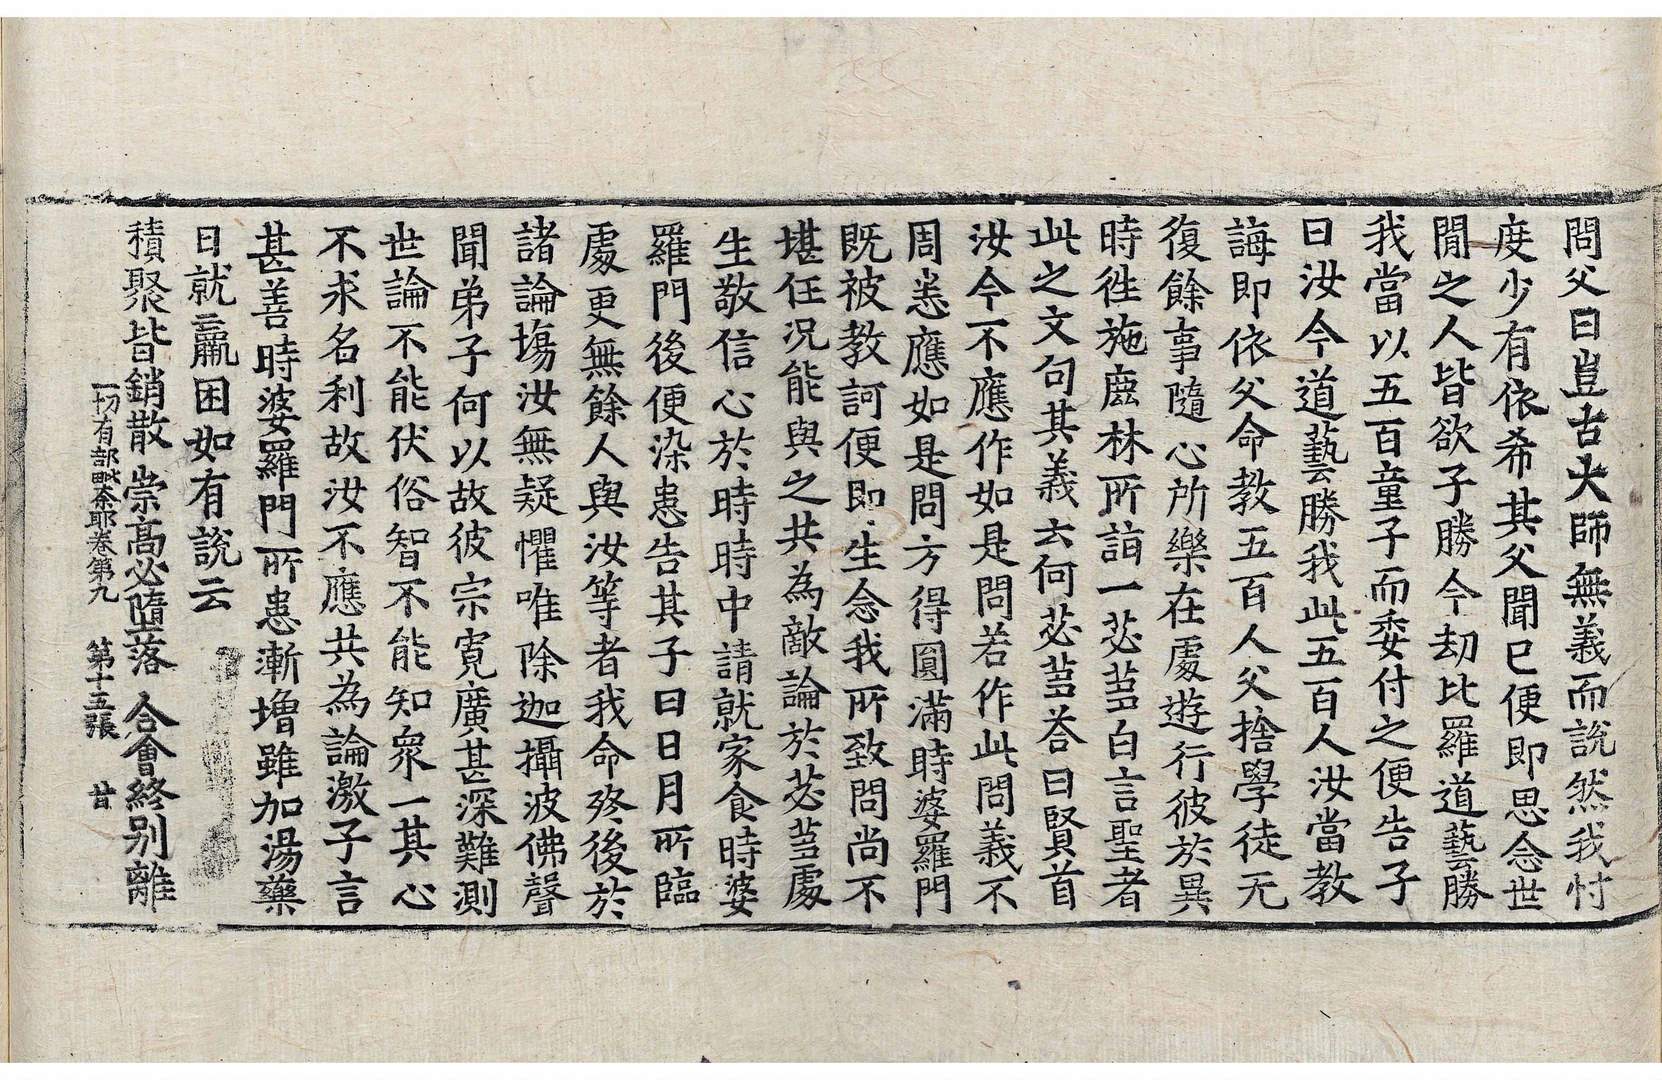 問父曰豈古大師無義而說然我忖
度少有依希其父聞已便即思念世
閒之人皆欲子勝今劫比羅道藝勝
我當以五百童子而委付之便告子
曰汝今道藝勝我此五百人汝當教
誨即依父命教五百人父捨學徒无
復餘事隨心所樂在處遊行彼於異
時徃施鹿林所詣一苾蒭白言聖者
此之文句其義云何苾蒭荅曰賢首
汝今不應作如是問若作此問義不
周悉應如是問方得圓滿時婆羅門
既被教訶便即生念我所致問尚不
堪任况能與之共為敵論於苾蒭處
生敬信心於時時中請就家食時婆
羅門後便染患告其子曰日月所臨
處更無餘人與汝等者我命殁後於
諸論場汝無疑懼唯除迦攝波佛聲
聞弟子何以故彼宗寛廣甚深難測
世論不能伏俗智不能知衆一其心
不求名利故汝不應共為論激子言
甚善時婆羅門所患漸增雖加湯藥
日就羸困如有說云
積聚皆銷散 崇高必墮落 合會終別離
一切有部毗奈耶卷第九 第十五張 甘